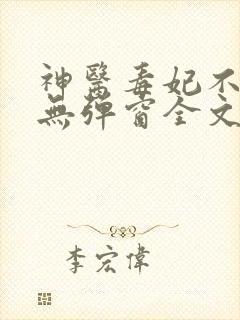 神醫毒妃不
無彈窗全文
李宏偉